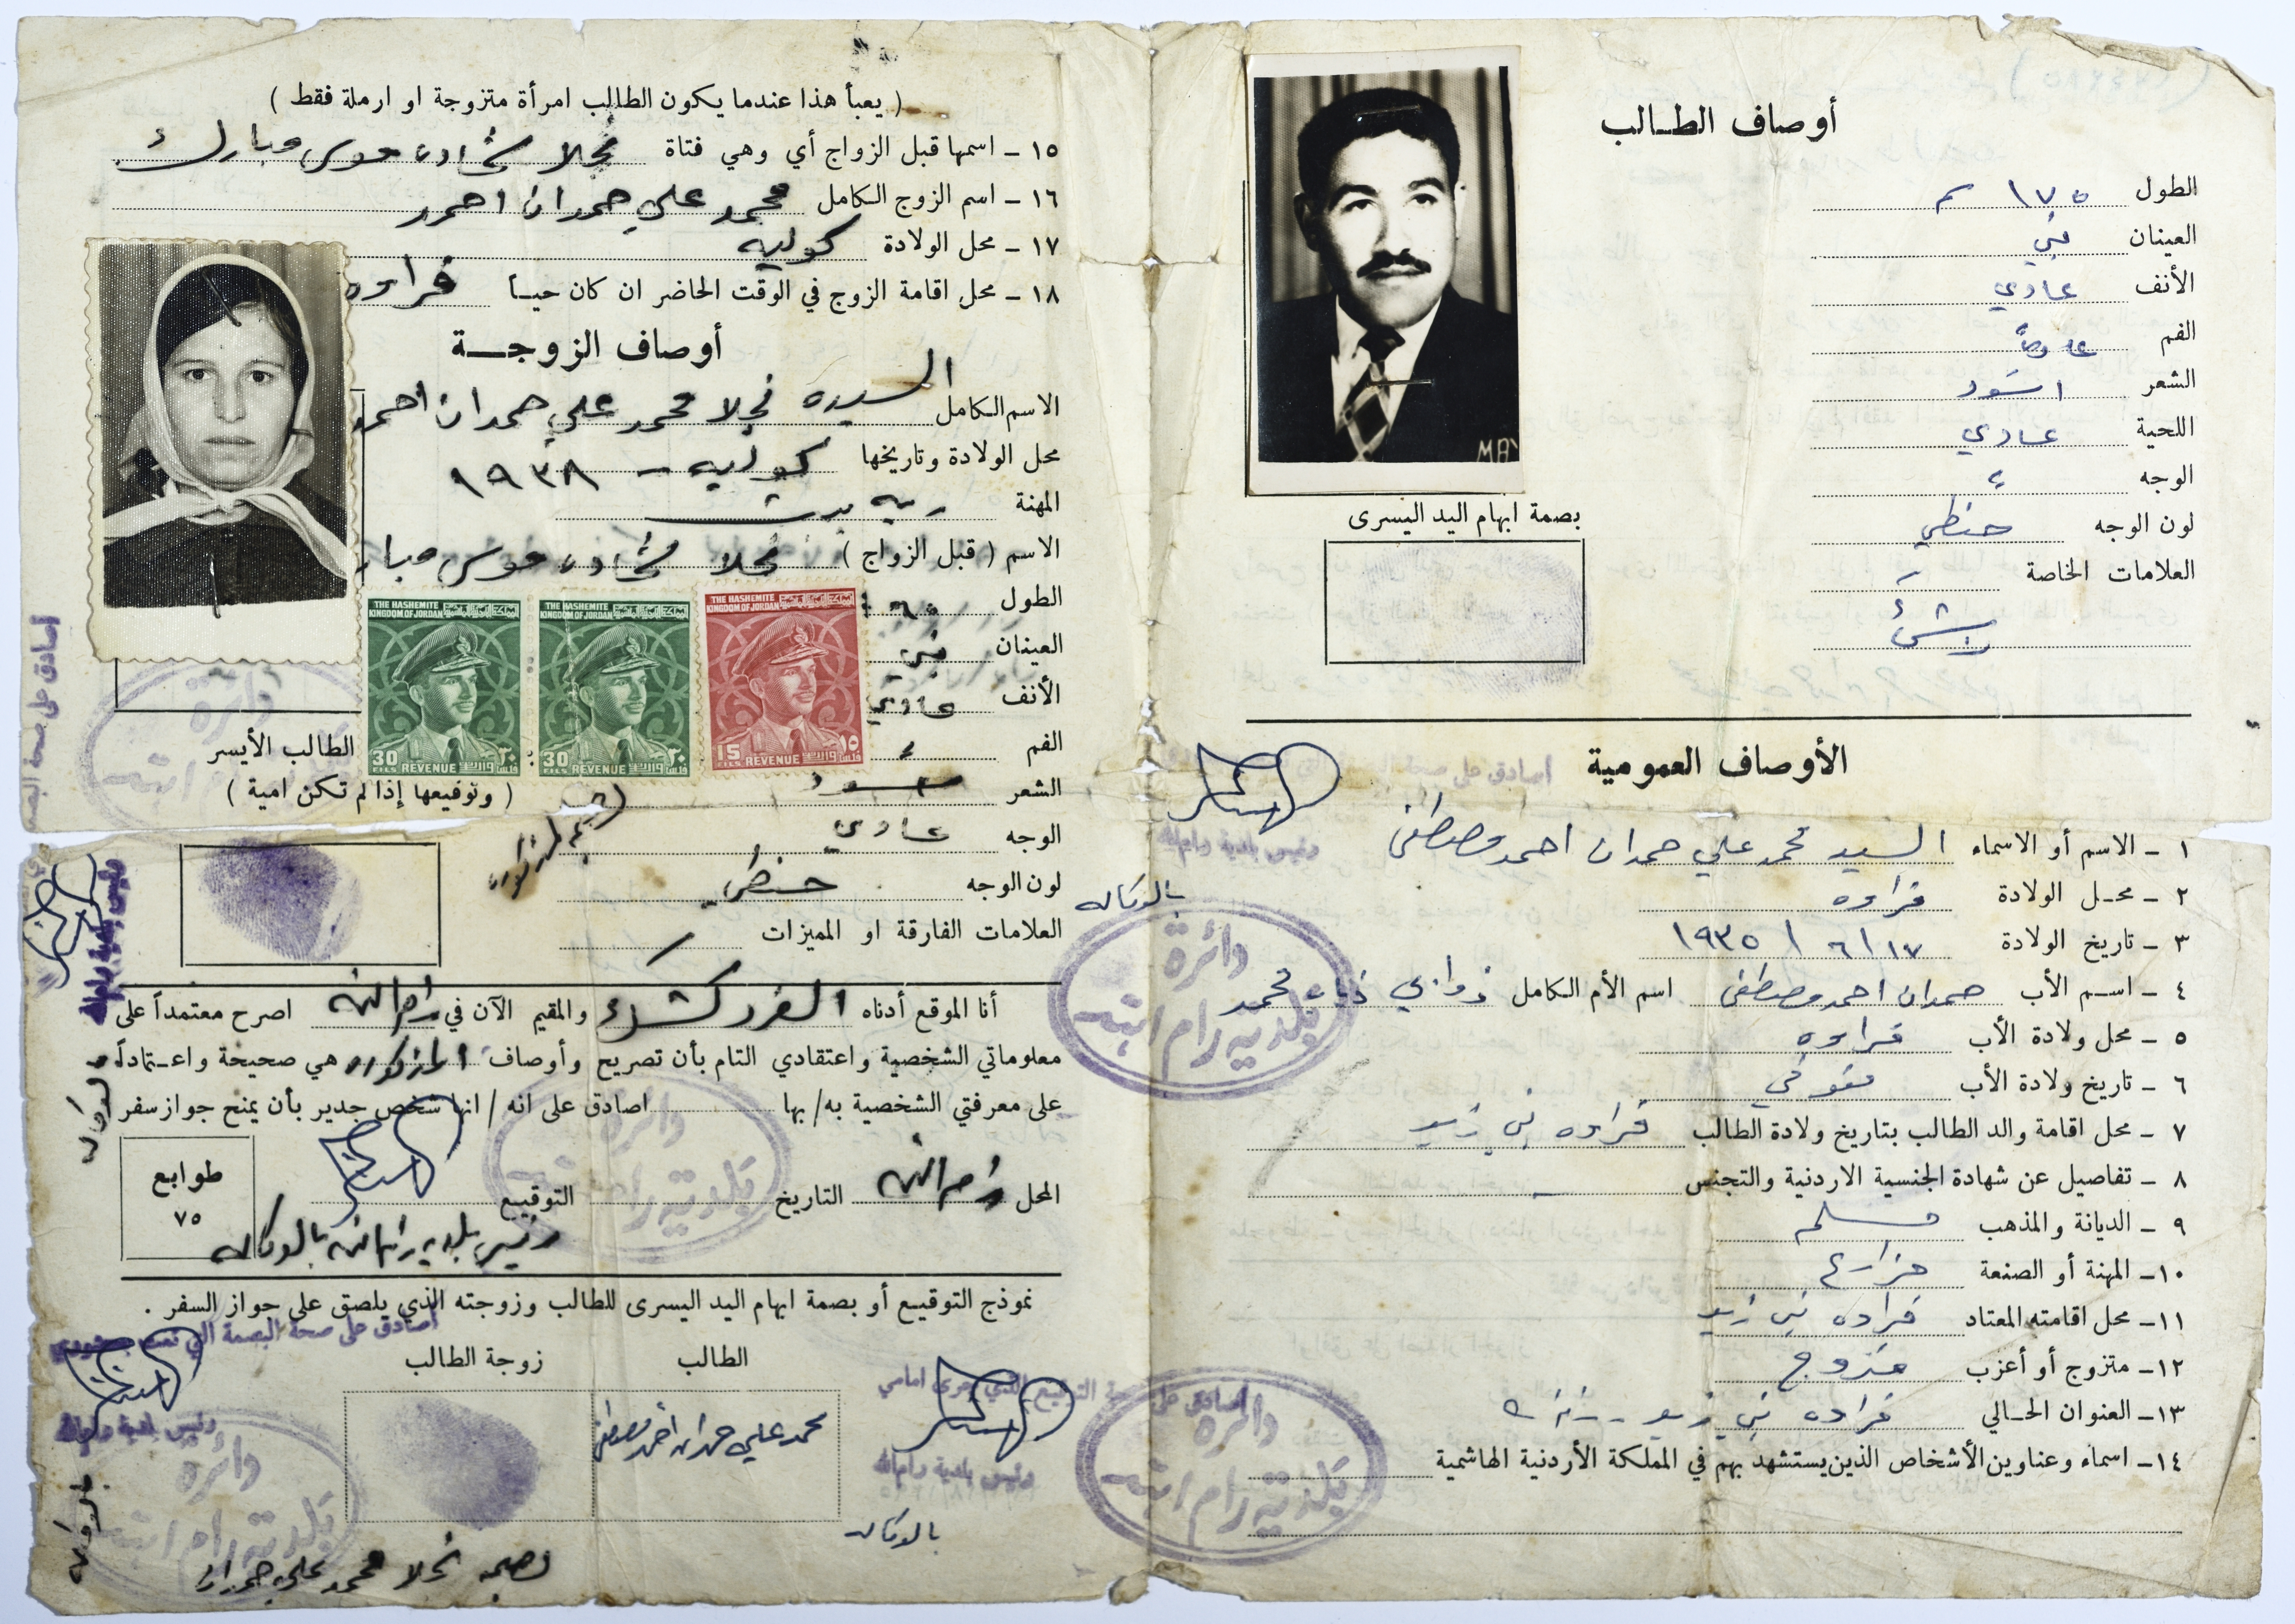 أوصاف الطالب
الطول ١٧٥ سم
العينان بني
الأنف عادي
الفم عادي
الشعر اسود
اللحية عادي
الوجه
لون الوجه حنطي
العلامات الخاصة
بصمة ابهام اليد اليسرى
MAY
الأوصاف العمومية
١ - الاسم أو الاسماء السيد محمد علي حمدان احمد مصطفى
٢ - محل الولادة قراوه
٣ - تاريخ الولادة ١٧ / ٦ / ١٩٣٥
٤ - اسم الأب حمدان احمد مصطفى اسم الأم الكامل محمد
٥ - محل ولادة الأب قراوه
٦ - تاريخ ولادة الأب متوفي
٧ - محل اقامة والد الطالب بتاريخ ولادة الطالب قراوه بني زيد
٨ - تفاصيل عن شهادة الجنسية الاردنية والتجنس -
٩ - الديانة والمذهب مسلم
١٠- المهنة أو الصنعة مزارع
١١- محل اقامته المعتاد قراوه بني زيد
١٢- متزوج أو أعزب متزوج
١٣- العنوان الحالي قراوه بني زيد
١٤- اسماء وعناوين الأشخاص الذين يستشهد بهم في المملكة الأردنية الهاشمية
رئيس بلدية رام الله
بالوكاله
دائرة
بلدية رام الله
( يعبأ هذا عندما يكون الطالب امرأة متزوجة او ارملة فقط )
١٥ - اسمها قبل الزواج أي وهي فتاة نجلا شحاده موسى مبارك
١٦ - اسم الزوج الكامل محمد علي حمدان احمد
١٧ - محل الولادة
١٨ - محل اقامة الزوج في الوقت الحاضر ان كان حياً قراوه
أوصاف الزوجة
الاسم الكامل السيده نجلا محمد علي حمدان احمد
محل الولادة وتاريخها - ١٩٣٨
المهنة ربة بيت
الاسم ( قبل الزواج ) نجلا شحاده موسى مبارك
الطول
العينان بني
الأنف عادي
الفم
الشعر اسود
الوجه عادي
لون الوجه حنطي
العلامات الفارقة او المميزات
THE HASHEMITE KINGDOM OF JORDAN
30 FILS REVENUE ٣٠ فلس
THE HASHEMITE KINGDOM OF JORDAN
30 FILS REVENUE ٣٠ فلس
THE HASHEMITE KINGDOM OF JORDAN
15 FILS REVENUE ١٥ فلس
الطالب الأيسر
( وتوقيعها إذا لم تكن امية )
أصادق على صحة البصمة
رئيس بلدية رام الله
بالوكاله
أنا الموقع أدناه والمقيم الآن في رام الله اصرح معتمداً على
معلوماتي الشخصية واعتقادي التام بأن تصريح وأوصاف المذكوره هي صحيحة واعتماداً
على معرفتي الشخصية به/بها اصادق على انه / انها شخص جدير بأن يمنح جواز سفر
المحل رام الله التاريخ التوقيع
رئيس بلدية رام الله بالوكاله
طوابع
٧٥
نموذج التوقيع أو بصمة ابهام اليد اليسرى للطالب وزوجته الذي يلصق على جواز السفر .
أصادق على صحة البصمة التي تمت بوجودي
الطالب
زوجة الطالب
محمد علي حمدان أحمد مصطفى
أصادق على صحة التوقيع الذي جرى امامي
رئيس بلدية رام الله
بالوكاله
دائرة
بلدية رام الله
رئيس بلدية رام الله
بالوكاله
دائرة
بلدية رام الله
بصمة نجلا محمد علي حمدان